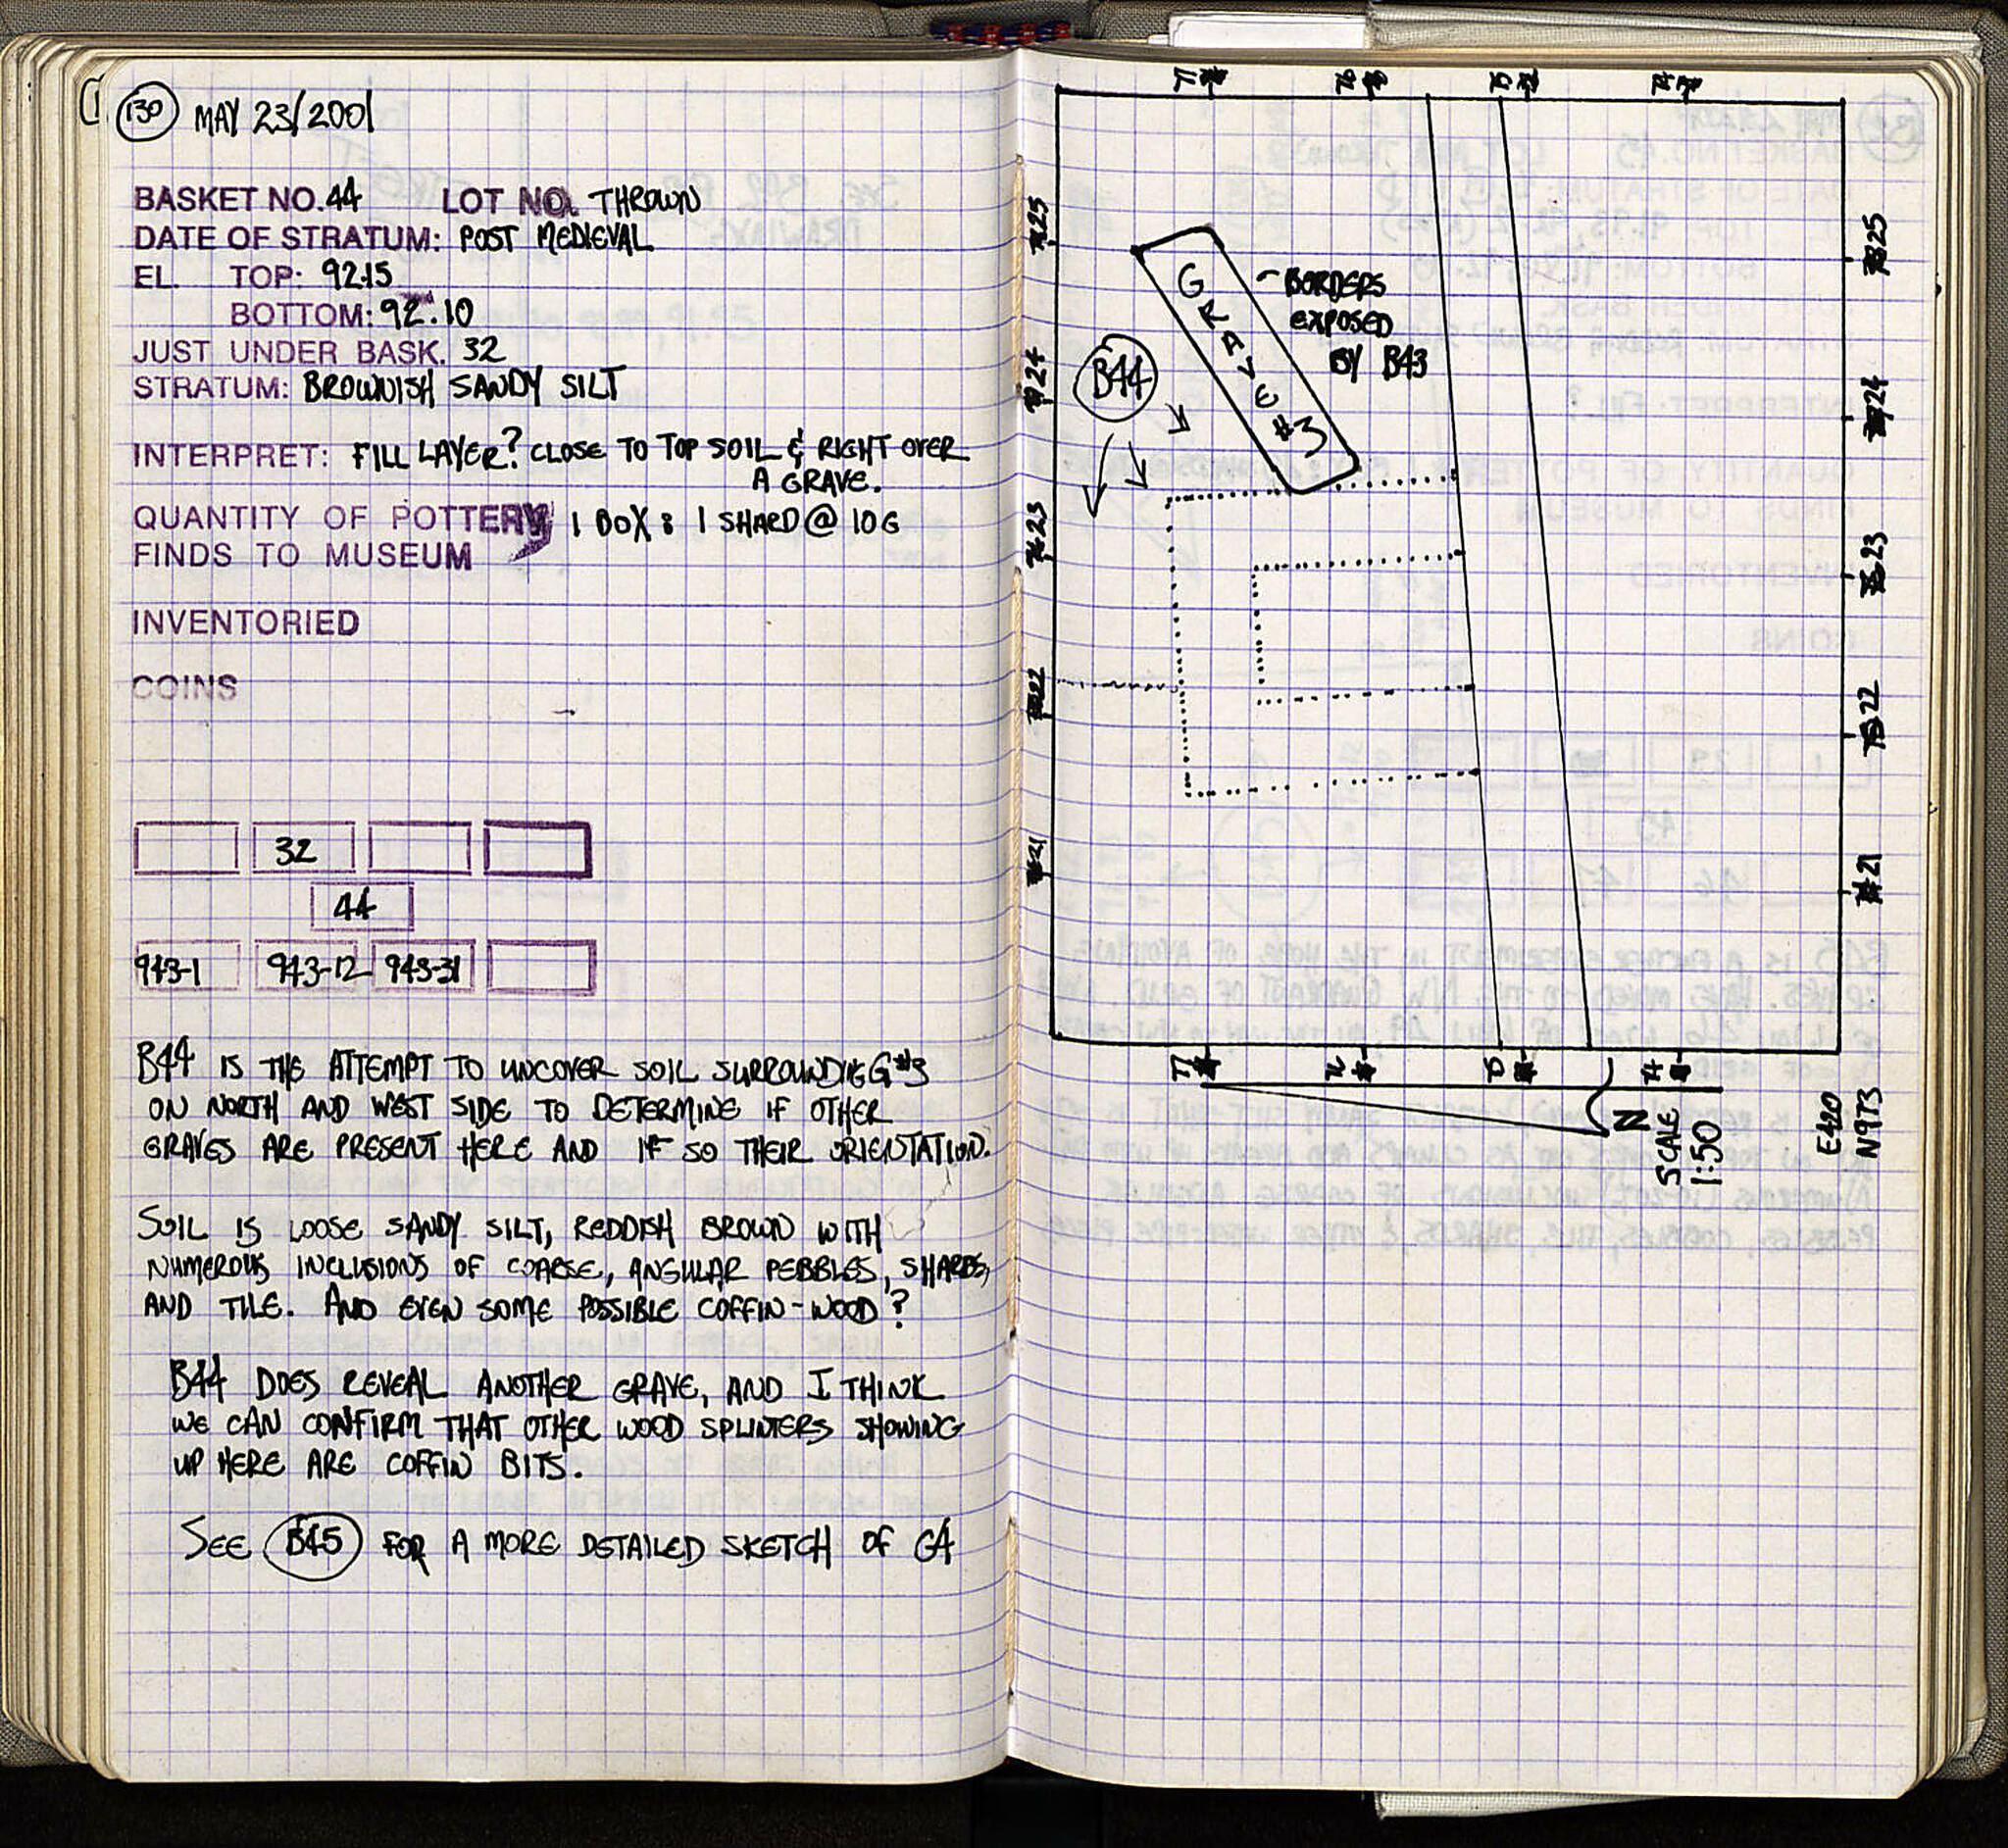 130 MAY 23/2001
BASKET NO. 44 LOT NO. THROWN
DATE OF STRATUM: POST MEDIEVAL
EL. TOP: 92.15
BOTTOM: 92.10
JUST UNDER BASK. 32
STRATUM: BROWNISH SANDY SILT
INTERPRET: FILL LAYER? CLOSE TO TOP SOIL & RIGHT OVER
A GRAVE.
QUANTITY OF POTTERY 1 BOX: 1 SHARD @ 10G
FINDS TO MUSEUM
INVENTORIED
COINS
32
44
943-1 943-12 943-31
B44 IS THE ATTEMPT TO UNCOVER SOIL SURROUNDING G#3
ON NORTH AND WEST SIDE TO DETERMINE IF OTHER
GRAVES ARE PRESENT HERE AND IF SO THEIR ORIENTATION.
SOIL IS LOOSE SANDY SILT, REDDISH BROWN WITH
NUMEROUS INCLUSIONS OF COARSE, ANGULAR PEBBLES, SHARDS,
AND TILE. AND EVEN SOME POSSIBLE COFFIN-WOOD?
B44 DOES REVEAL ANOTHER GRAVE, AND I THINK
WE CAN CONFIRM THAT OTHER WOOD SPLINTERS SHOWING
UP HERE ARE COFFIN BITS.
SEE B45 FOR A MORE DETAILED SKETCH OF G4
77 76 75 74
25 25
GRAVE #3
BORDERS
EXPOSED
BY B43
B44
24 24
23 23
22 22
21 21
77 76 75 74
N
SCALE
1:50
E420
N973